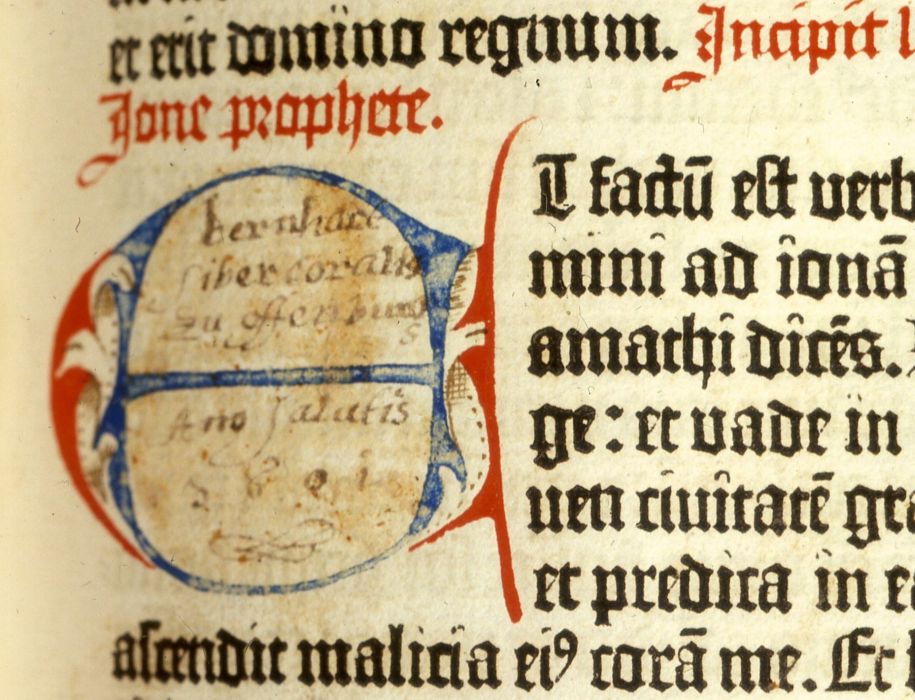 et erit domino regnum. Incipit l
Jone prophete.
ET factū est verb
mini ad ionā
amathi dicēs.
ge: et vade in
uen civitatē gra
et predica in e
ascendit malicia eiꝰ corā me. Et
bernhart
liber coralis
zu offenburg
Ano salutis